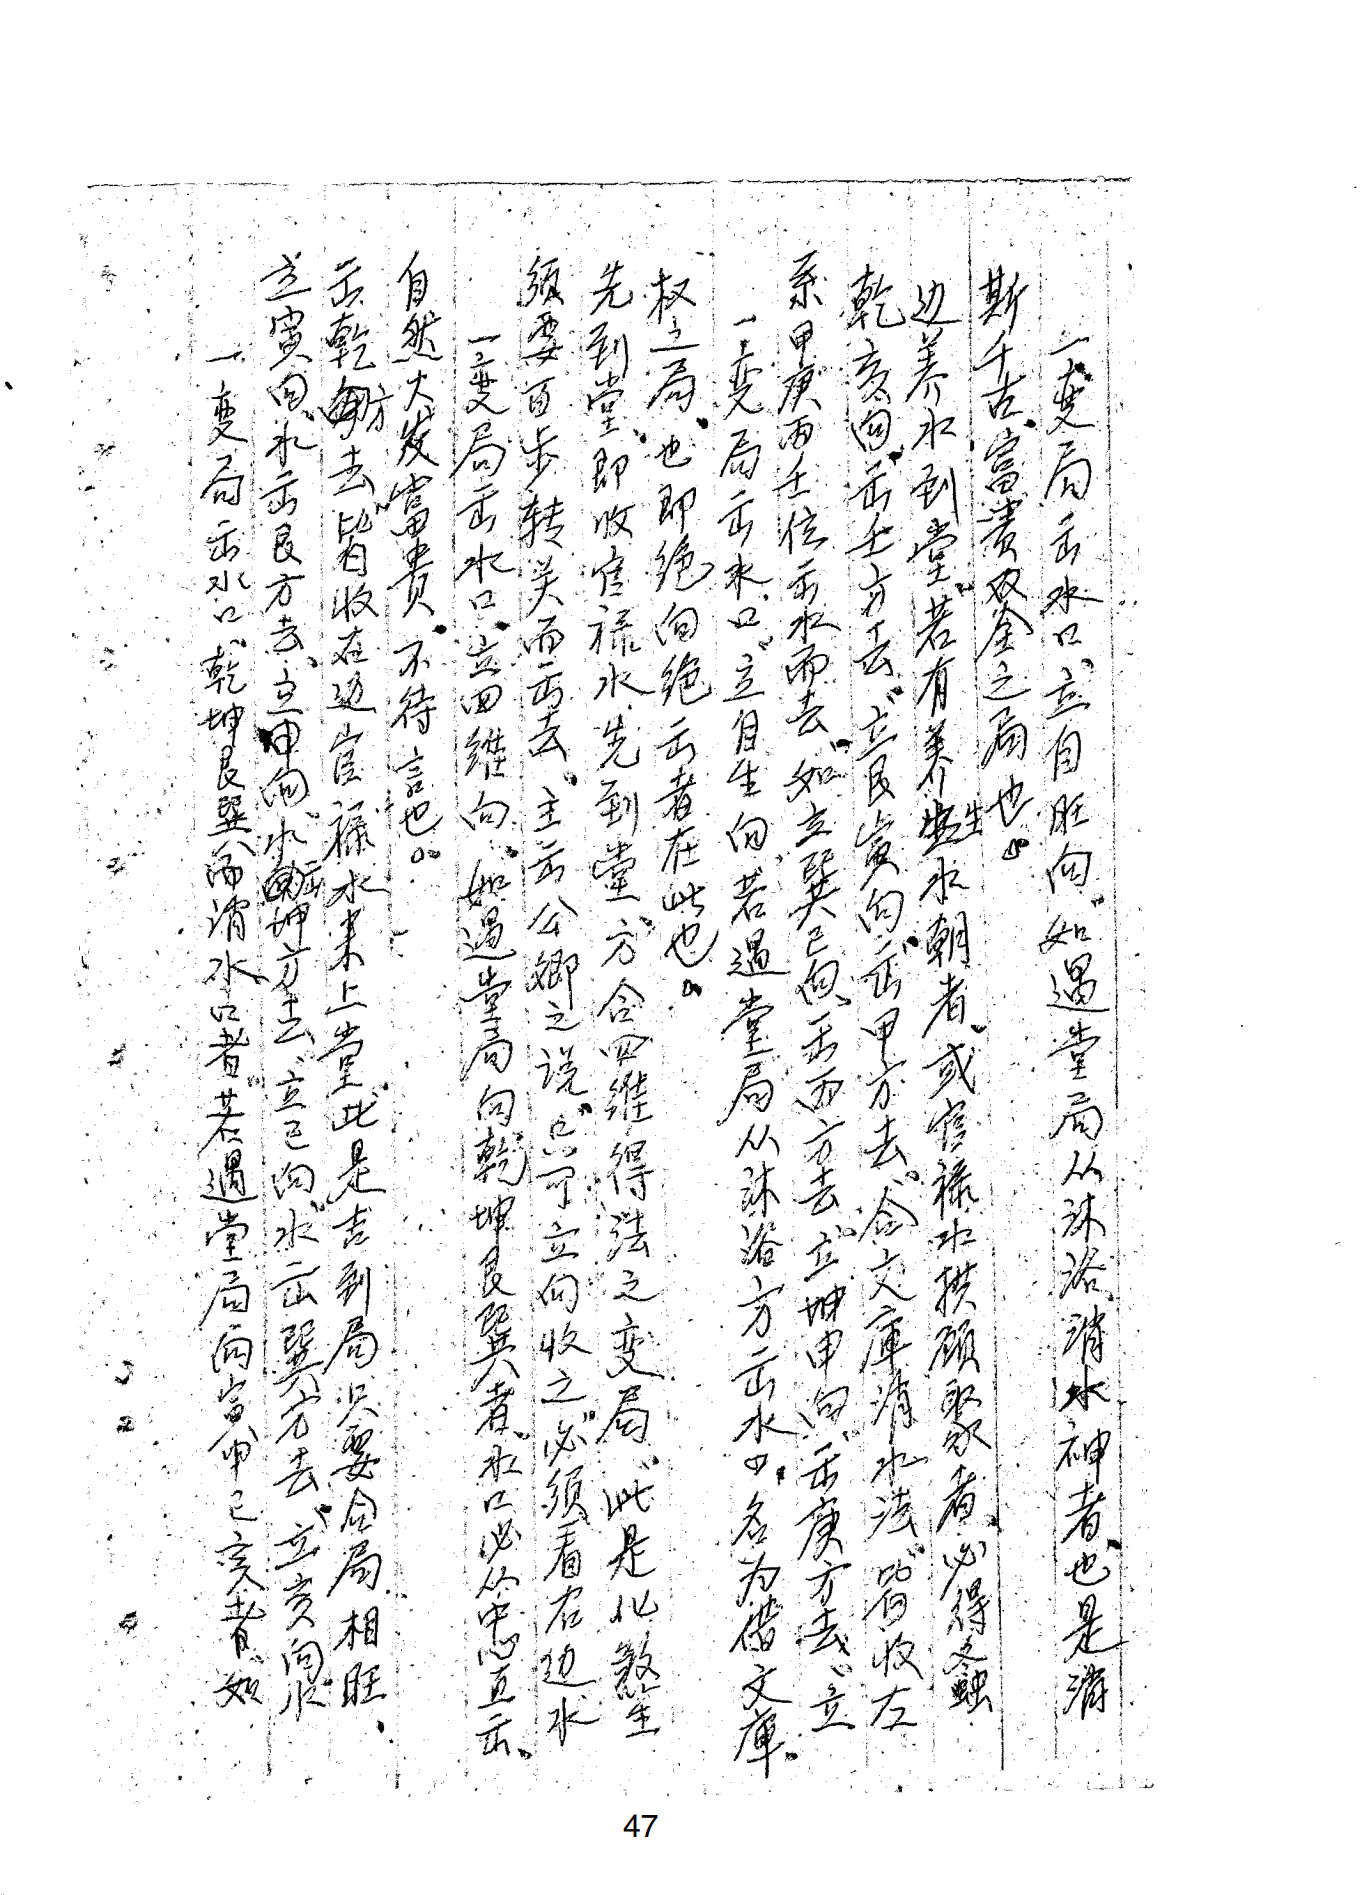 一变局出水口、立自旺向、如遇堂局从沐浴消水神者、也是濟
斯千古、富贵双全之局也。
边养水到堂、若有养生水朝者、或官禄水拱顾聚者、必得螽
乾亥向、出壬方去、立艮寅向、出甲方去、合文庫消水法、皆收左
系甲庚丙壬位出水而去、如立巽巳向、出丙方去、立坤申向、出庚方去、立
一变局出水口、立自生向、若遇堂局从沐浴方出水口、名为借文庫、
权之局、也即绝向绝出者在此也。
先到堂、即收官禄水、先到堂方、合四維得法之变局、此是化煞生
须要百步转关而出去、主出公卿之说、只可立向收之、必须看右边水
一变局出水口、立四維向、如遇堂局向乾坤艮巽者、水口必从中心直出、
自然大发富贵、不待言也。
出乾方去、皆收在边官禄水来上堂、此是吉到局、只要合局相旺、
立寅向、水出艮方去、立申向、水出坤方去、立巳向、水出巽方去、立亥向水
一变局出水口、乾坤艮巽而消水口者、若遇堂局向寅申巳亥者、如
47